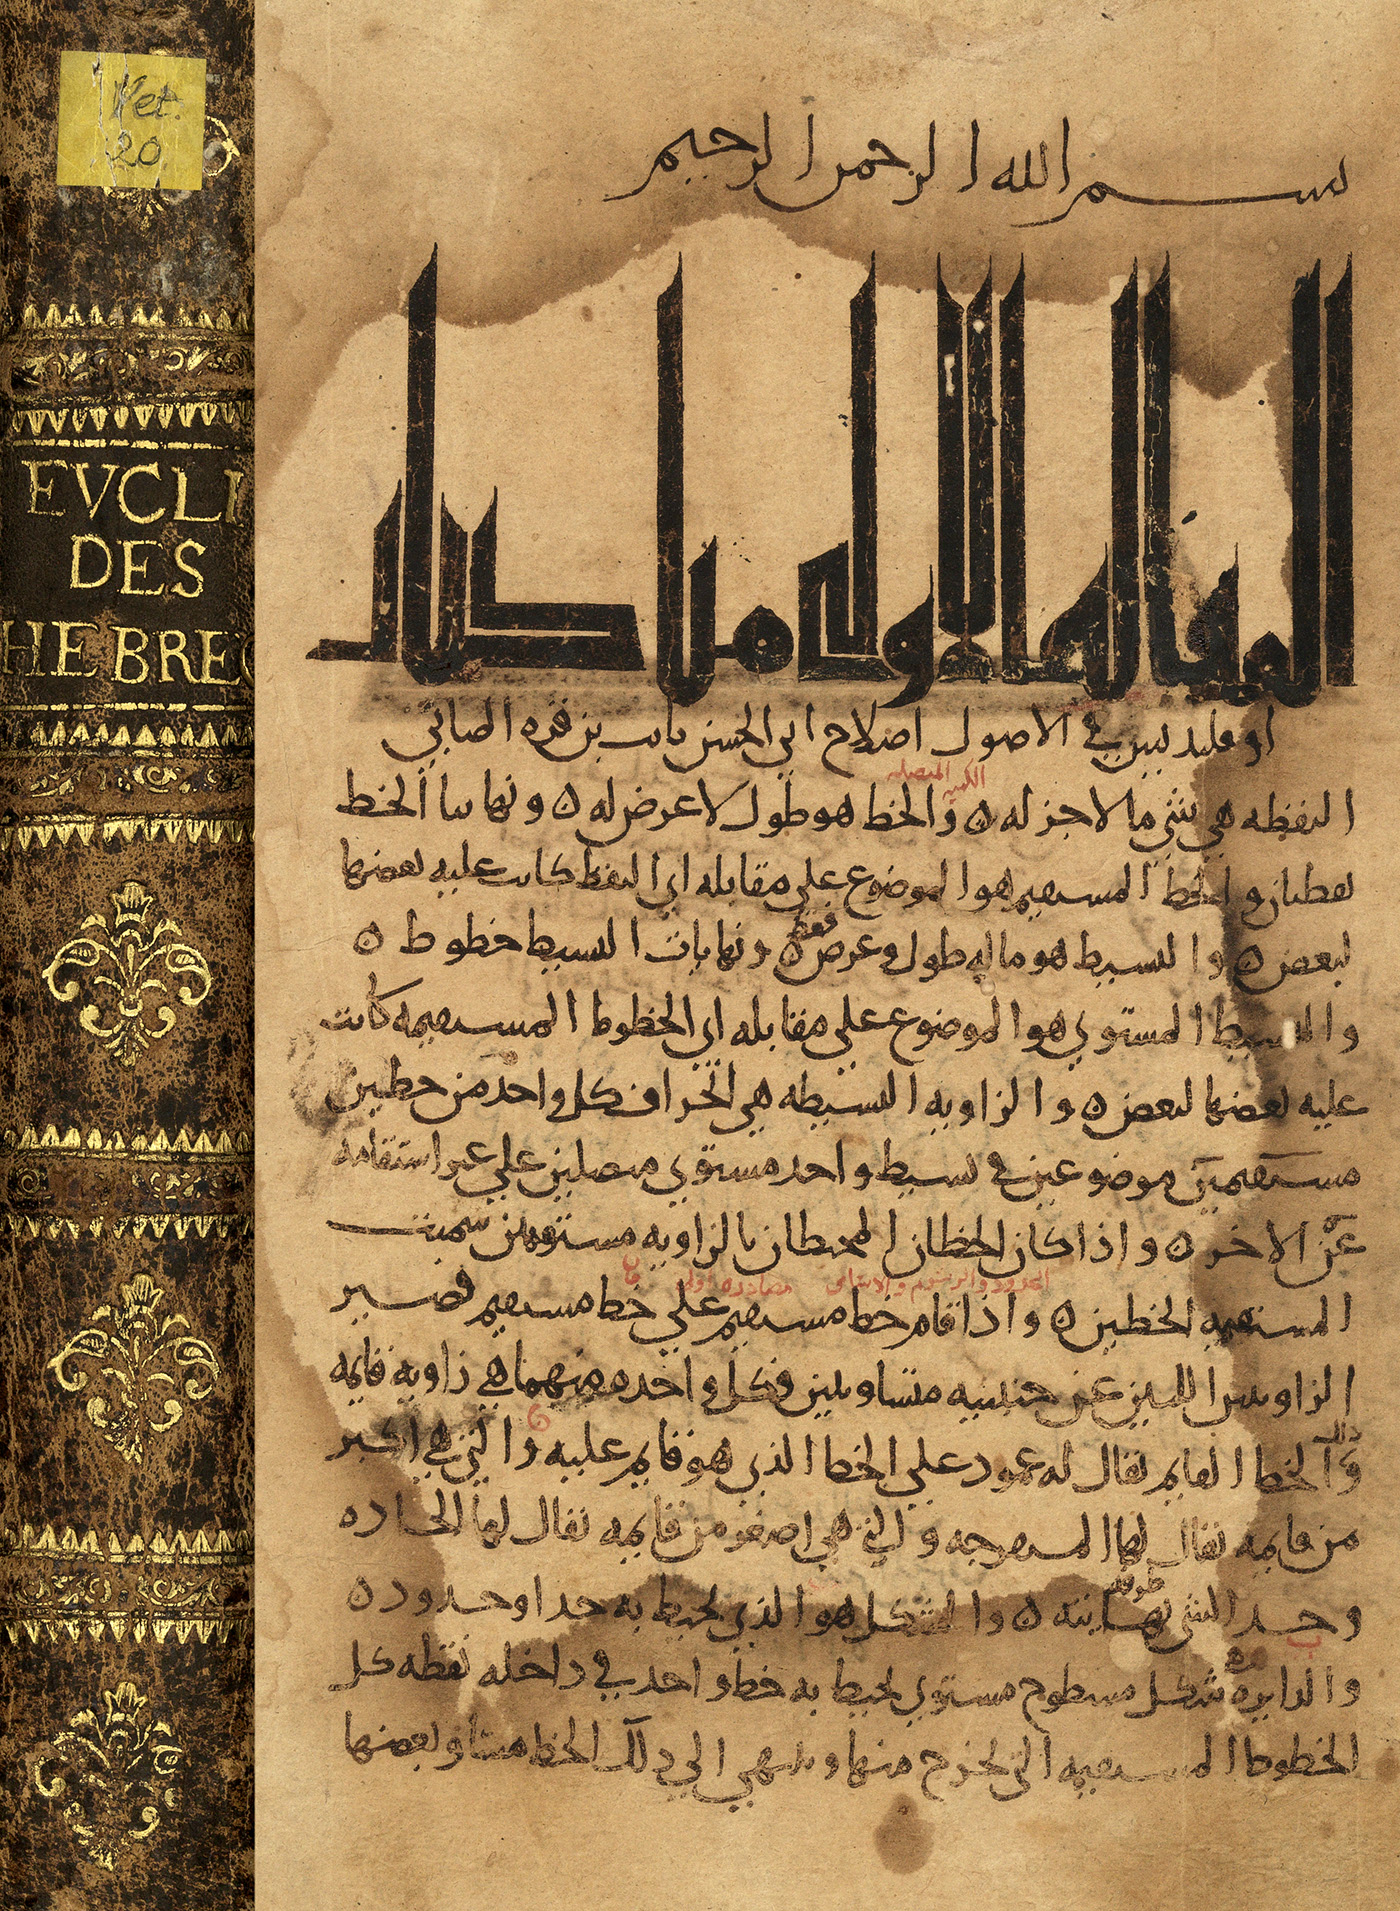 Vet.
20
EVCLI
DES
HEBREO
بسم الله الرحمن الرحيم
المقالة الاولى من كتاب
اوقليديس في الاصول اصلاح ابي الحسن ثابت بن قره الصابي
الكمية المتصله
النقطه هي شي ما لا جز له ه والخط هو طول لا عرض له ه ونهايتا الخط
نقطتان والخط المستقيم هو الموضوع على مقابله اي النقط كانت عليه بعضها
فقط
لبعض ه والبسيط هو ما له طول وعرض ه ونهايات البسيط خطوط ه
والبسيط المستوي هو الموضوع على مقابله اي الخطوط المستقيمه كانت
عليه بعضها لبعض ه والزاويه البسيطه هي انحراف كل واحد من خطين
مستقيمين موضوعين في بسيط واحد مستوي متصلين على غير استقامه
عن الاخر ه واذا كان الخطان المحيطان بالزاويه مستقيمين سميت
الحدود والرسوم
المستقيمه الخطين ه واذا قام خط مستقيم على خط مستقيم فصير
الزاويتين اللتين عن جنبتيه متساويتين فكل واحده منهما هي زاويه قايمه
ذلك
والخط القايم يقال له عمود على الخط الذي هو قايم عليه والتي هي اكبر
من قايمه يقال لها المنفرجه والتي هي اصغر من قايمه يقال لها الحاده
وحد الشي نهايته ه والشكل هو الذي يحيط به حد او حدود ه
والدايره شكل مسطوح مستوي يحيط به خط واحد في داخله نقطه كل
الخطوط المستقيمه التي تخرج منها وتنتهي الى ذلك الخط مساو بعضها